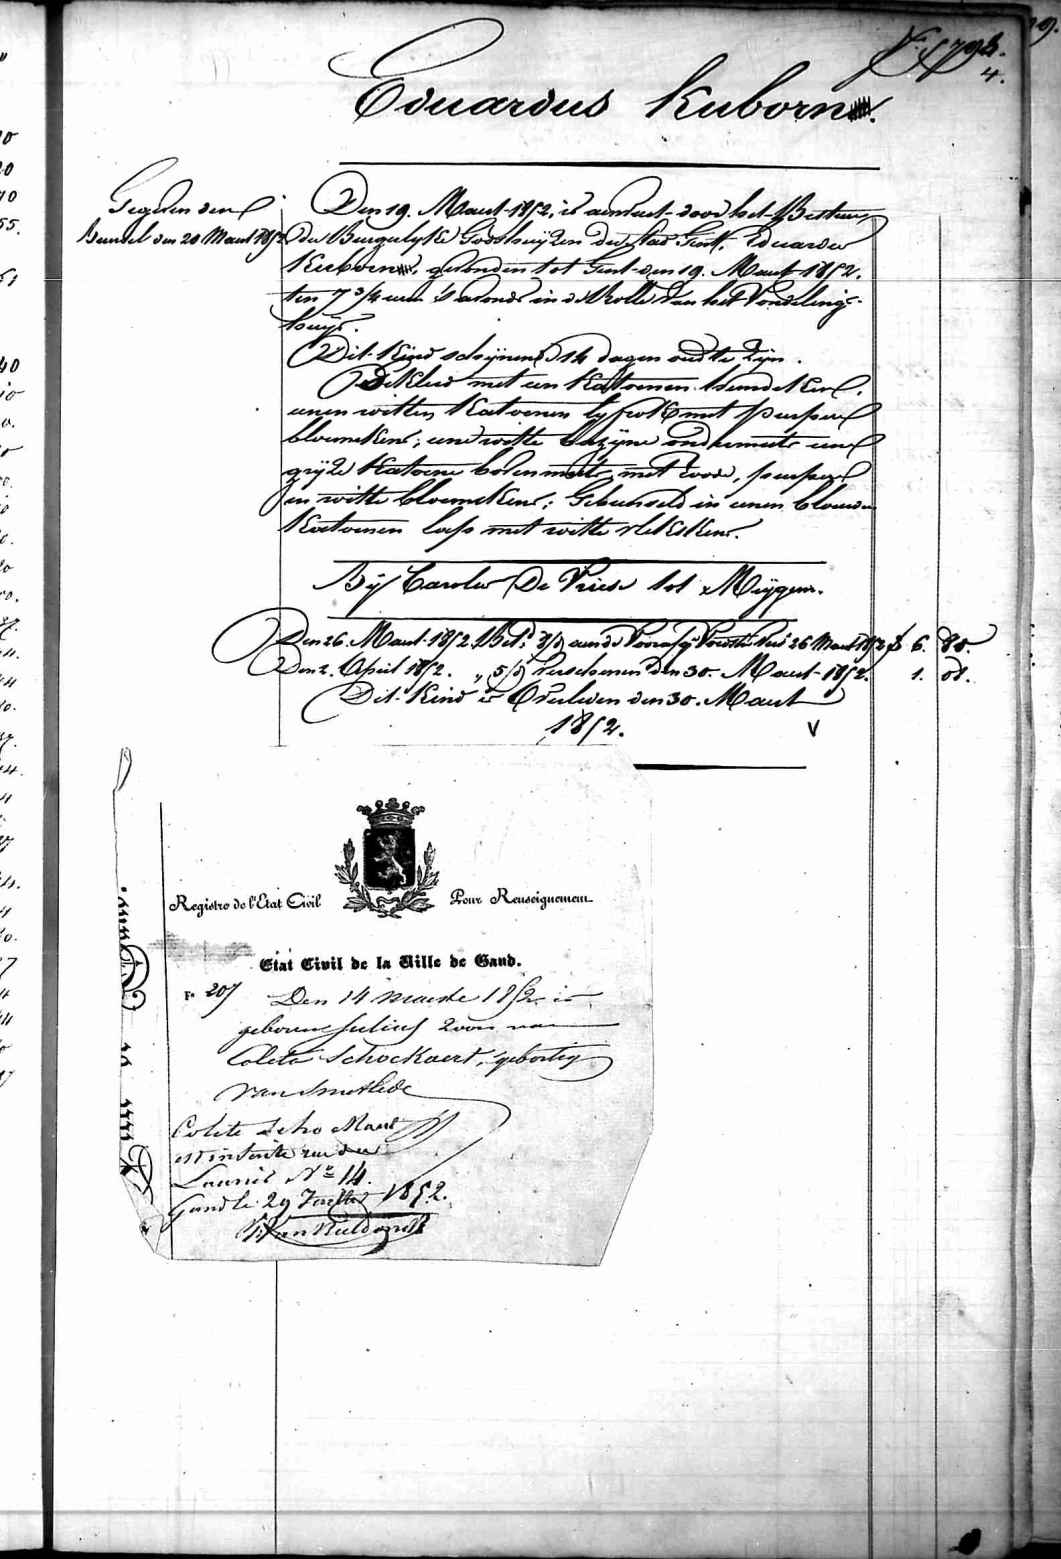 Eduardus Kuborn.
Gegeven den
Bundel den 20 Maart 1852
Den 19. Maart 1852, is aenveert door het Bestuur
der Burgelyke Godshuijzen der Stad Gent, Eduardus
Kuborn, gevonden tot Gent den 19. Maart 1852.
ten 7 3/4 uren 's avonds in de Rolle van het Vondeling-
huys.
Dit Kind schijnende 14 dagen oud te Zyn.
Gekleed met een Katoenen hemdeken,
eenen witten Katoenen lyfrok met purpere
bloemekens; eene witte bazijne ondermuts eene
grijze Katoene bovenmuts met roode, purpere
en witte bloemekens; Gebunseld in eenen blauwen
Katoenen lap met witte plekskens.
Bij Carolus De Vriese tot Meijgem.
Den 26. Maart 1852. 26 Maart 1852 f 6. 80.
Den 2. April 1852. " 5/5 Verschenen den 30. Maart 1852. 1. 08.
Dit Kind is Overleden den 30. Maart
1852.
V
Registre de l'Etat Civil Pour Renseignement
Etat Civil de la Ville de Gand.
F° 207 Den 14 maerte 1852 is
geboren Julius zoon van
Coleta Schockaert, gebortig
van Smetlede
Colete Scho
est inscrite rue des
N° 14.
Gand le 29 1852.